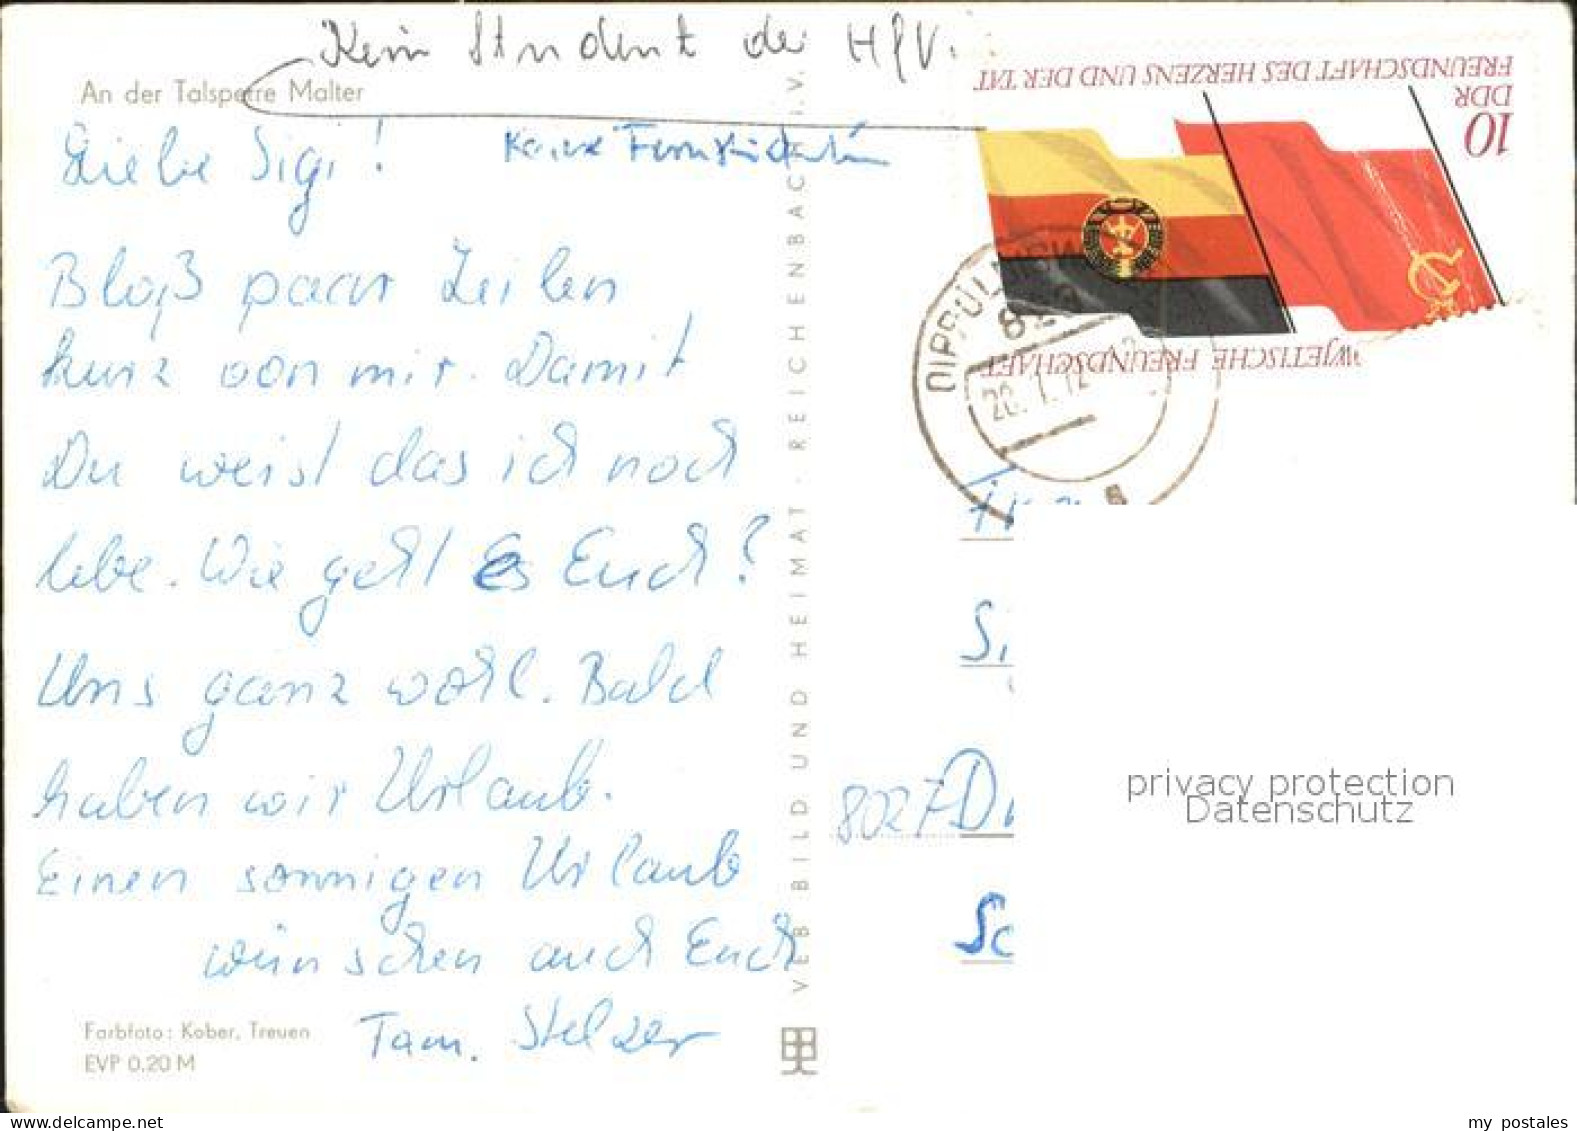 Kein Student der HfV.
An der Talsperre Malter
Liebe Sigi!
Keine Fernstudentin
Bloß paar Zeilen
kurz von mir. Damit
Du weist das ich noch
lebe. Wie geht Es Euch?
Uns ganz wohl. Bald
haben wir Urlaub.
Einen sonnigen Urlaub
wünschen auch Euch
Fam. Stelzer
Farbfoto: Kober, Treuen
EVP 0.20 M
VEB BILD UND HEIMAT · REICHENBACH I.V.
FREUNDSCHAFT DES HERZENS UND DER TAT
DDR
10
WJETISCHE FREUNDSCHAFT
Si
8027 D
Sc
privacy protection
Datenschutz
my postales